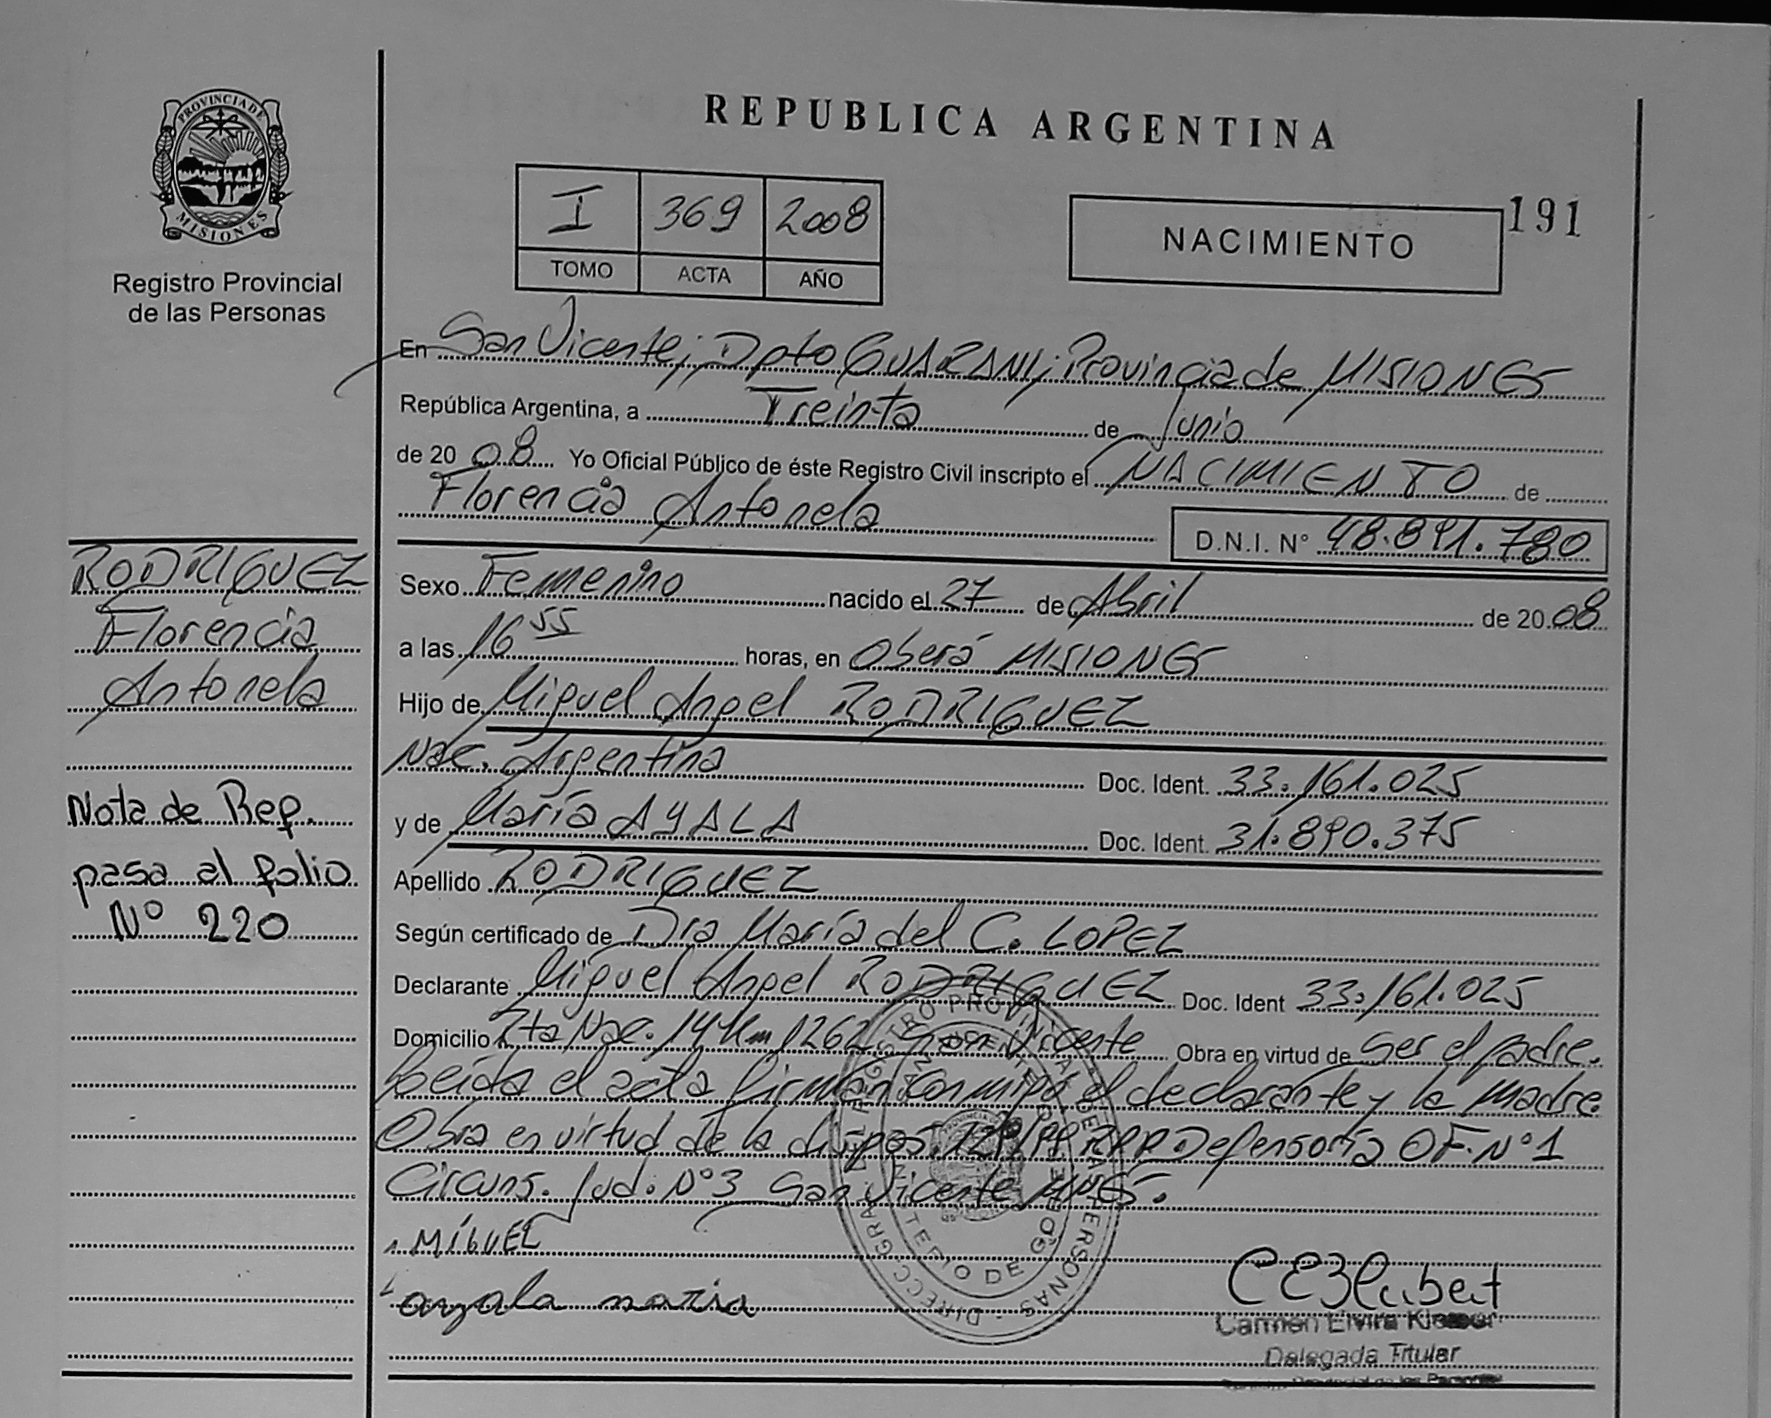 PROVINCIA DE
MISIONES
Registro Provincial
de las Personas
REPUBLICA ARGENTINA
I 369 2008
TOMO ACTA AÑO
NACIMIENTO
191
En San Vicente; Dpto GUARANI; Provincia de MISIONES
República Argentina, a Treinta de Junio
de 20 08 Yo Oficial Público de éste Registro Civil inscripto el NACIMIENTO de
Florencia Antonela
D.N.I. N° 48.891.780
RODRIGUEZ
Florencia
Antonela
Nota de Ref.
pasa al folio
N° 220
Sexo Femenino nacido el 27 de Abril de 20 08
a las 16 55 horas, en Oberá MISIONES
Hijo de Miguel Angel RODRIGUEZ
Nac. Argentina Doc. Ident. 33.161.025
y de María AYALA Doc. Ident. 31.890.375
Apellido RODRIGUEZ
Según certificado de Dra María del C. LOPEZ
Declarante Miguel Angel RODRIGUEZ Doc. Ident 33.161.025
Domicilio Rta Nac. 14 Km 1262 San Vicente Obra en virtud de ser el padre.
Leida el acta firman conmigo el declarante y la madre
Obra en virtud de la dispos. RPP Defensoría OF. N° 1
Circuns. Jud. N° 3 San Vicente MNES.
MIGUEL
ayala maria
Carmen Elvira
Delegada Titular